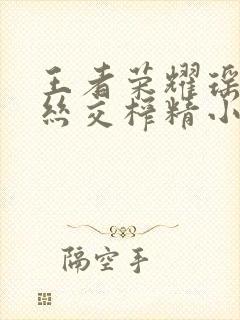 王者荣耀瑶
丝交榨精小
隔空手